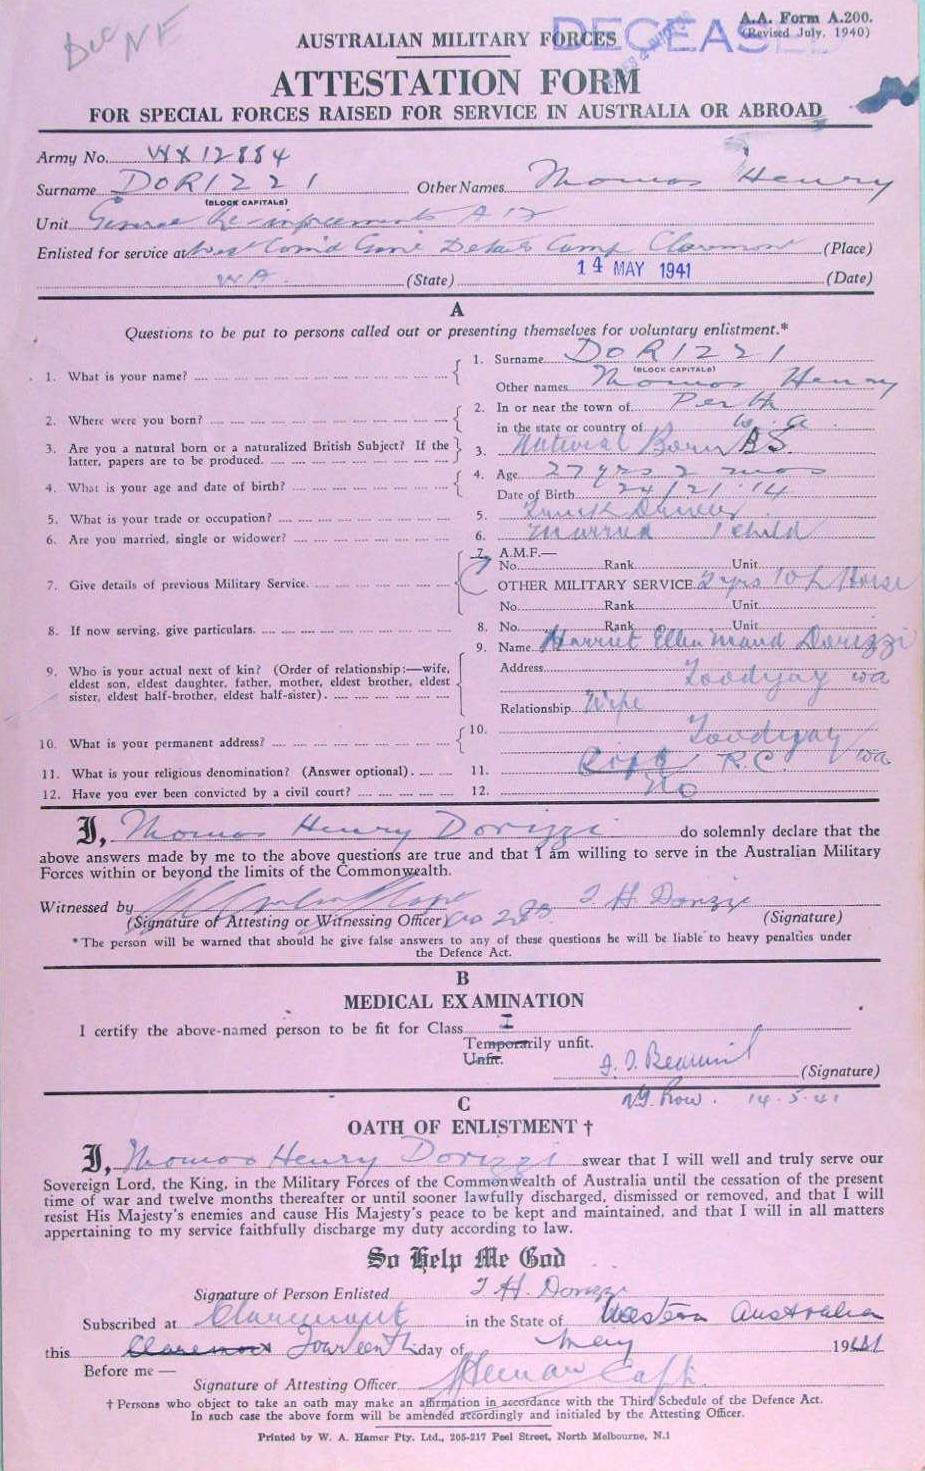 A.A. Form A.200.
(Revised July, 1940)
DECEASED
AUSTRALIAN MILITARY FORCES
ATTESTATION FORM
FOR SPECIAL FORCES RAISED FOR SERVICE IN AUSTRALIA OR ABROAD
Army No. WX12884
Surname DORIZZI Other Names Thomas Henry
(BLOCK CAPITALS)
Unit General Re-inforcements A I F
Enlisted for service at Camp Claremont (Place)
WA (State) 14 MAY 1941 (Date)
A
Questions to be put to persons called out or presenting themselves for voluntary enlistment.*
1. What is your name? 1. Surname DORIZZI
(BLOCK CAPITALS)
Other names Thomas Henry
2. Where were you born? 2. In or near the town of Perth
in the state or country of W. A
3. Are you a natural born or a naturalized British Subject? If the latter, papers are to be produced. 3. Natural Born B.S.
4. What is your age and date of birth? 4. Age 27 yrs 2 mos
Date of Birth
5. What is your trade or occupation? 5. Truck Driver
6. Are you married, single or widower? 6. Married 1 child
7. Give details of previous Military Service. 7. A.M.F.—
No. Rank Unit
OTHER MILITARY SERVICE 2 yrs 10 L Horse
No. Rank Unit
8. If now serving, give particulars. 8. No. Rank Unit
9. Who is your actual next of kin? (Order of relationship:—wife, eldest son, eldest daughter, father, mother, eldest brother, eldest sister, eldest half-brother, eldest half-sister). 9. Name Harriet Ellen Maud Dorizzi
Address Toodyay WA
Relationship Wife
10. What is your permanent address? 10. Toodyay WA
11. What is your religious denomination? (Answer optional). 11. R.C.
12. Have you ever been convicted by a civil court? 12. No
I, Thomas Henry Dorizzi do solemnly declare that the
above answers made by me to the above questions are true and that I am willing to serve in the Australian Military
Forces within or beyond the limits of the Commonwealth.
Witnessed by T H Dorizzi
(Signature of Attesting or Witnessing Officer) (Signature)
*The person will be warned that should he give false answers to any of these questions he will be liable to heavy penalties under
the Defence Act.
B
MEDICAL EXAMINATION
I certify the above-named person to be fit for Class I
Temporarily unfit.
Unfit.
(Signature)
14.5.41
C
OATH OF ENLISTMENT †
I, Thomas Henry Dorizzi swear that I will well and truly serve our
Sovereign Lord, the King, in the Military Forces of the Commonwealth of Australia until the cessation of the present
time of war and twelve months thereafter or until sooner lawfully discharged, dismissed or removed, and that I will
resist His Majesty's enemies and cause His Majesty's peace to be kept and maintained, and that I will in all matters
appertaining to my service faithfully discharge my duty according to law.
So Help Me God
Signature of Person Enlisted T H Dorizzi
Subscribed at Claremont in the State of Western Australia
this Claremont Fourteenth day of May 1941
Before me —
Signature of Attesting Officer Capt
† Persons who object to take an oath may make an affirmation in accordance with the Third Schedule of the Defence Act.
In such case the above form will be amended accordingly and initialed by the Attesting Officer.
Printed by W. A. Hamer Pty. Ltd., 205-217 Peel Street, North Melbourne, N.1